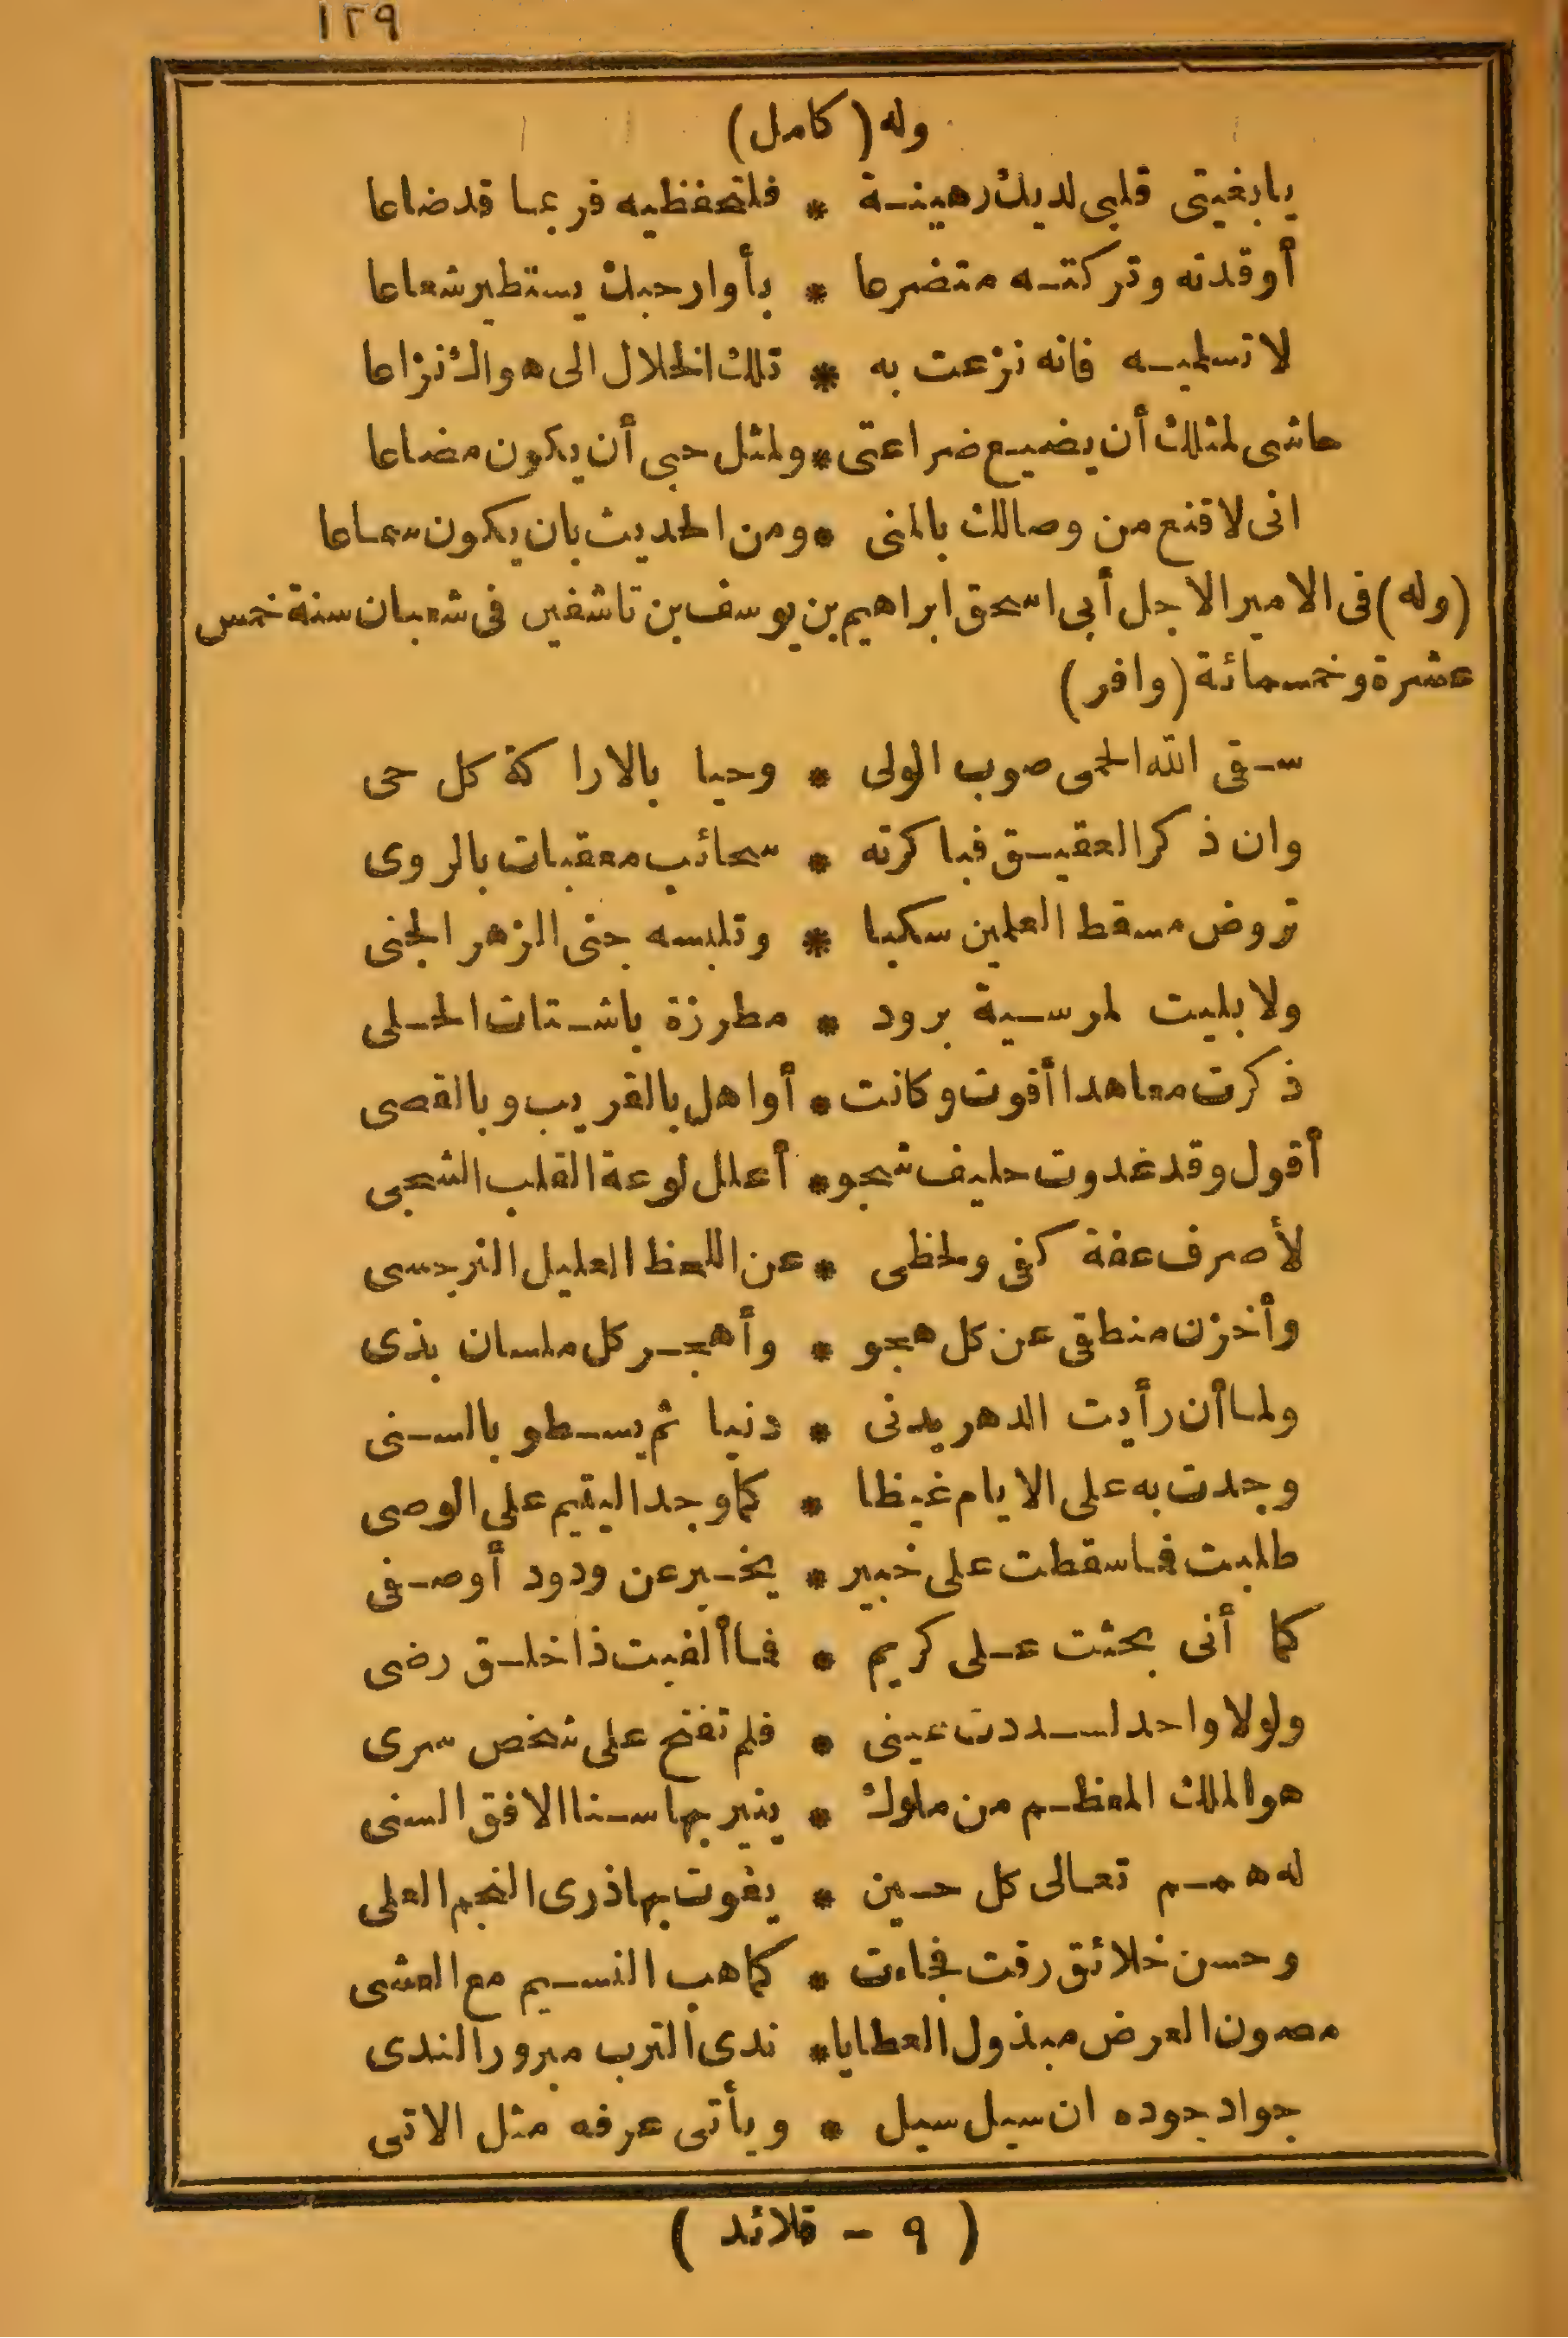 ١٢٩
وله (كامل)
يا بغيتي قلبي لديك رهينة * فلتحفظيه فربما قد ضاعا
أوقدته وتركته متضرعا * بأوار حبك يستطير شعاعا
لا تسلميه فانه نزعت به * تلك الخلال الى هواك نزاعا
حاشى لمثلك أن يضيع ضراعتى * ولمثل حبى أن يكون مضاعا
انى لاقنع من وصالك بالمنى * ومن الحديث بان يكون سماعا
(وله) فى الامير الاجل أبى اسحق ابراهيم بن يوسف بن تاشفين فى شعبان سنة خمس
عشرة وخمسمائة (وافر)
سقى الله الحمى صوب الولى * وحيا بالاراكة كل حى
وان ذكر العقيق فباكرته * سحائب معقبات بالروى
تروض مسقط العلمين سكبا * وتلبسه جنى الزهر الجنى
ولا بليت لمرسية برود * مطرزة باشتات الحلى
ذكرت معاهدا أقوت وكانت * أواهل بالقريب وبالقصى
أقول وقد غدوت حليف شجو * أعلل لوعة القلب الشجى
لأصرف عفة كفى ولحظى * عن اللحظ العليل النرجسى
وأخزن منطقى عن كل هجو * وأهجر كل ملسان بذى
ولما أن رأيت الدهر يدنى * دنيا ثم يسطو بالسنى
وجدت به على الايام غيظا * كما وجد اليتيم على الوصى
طلبت فما سقطت على خبير * يخبر عن ودود أو صفى
كما أنى بحثت على كريم * فما ألفيت ذا خلق رضى
ولولا واحد لسددت عينى * فلم تفتح على شخص سرى
هو الملك المعظم من ملوك * ينير بها سنا الافق السنى
له همم تعالى كل حين * يفوت بها ذرى النجم العلى
وحسن خلائق رقت فجاءت * كما هب النسيم مع العشى
مصون العرض مبذول العطايا * ندى الترب مبرور الندى
جواد جوده ان سيل سيل * ويأتى عرفه مثل الاتى
(٩ - قلائد)